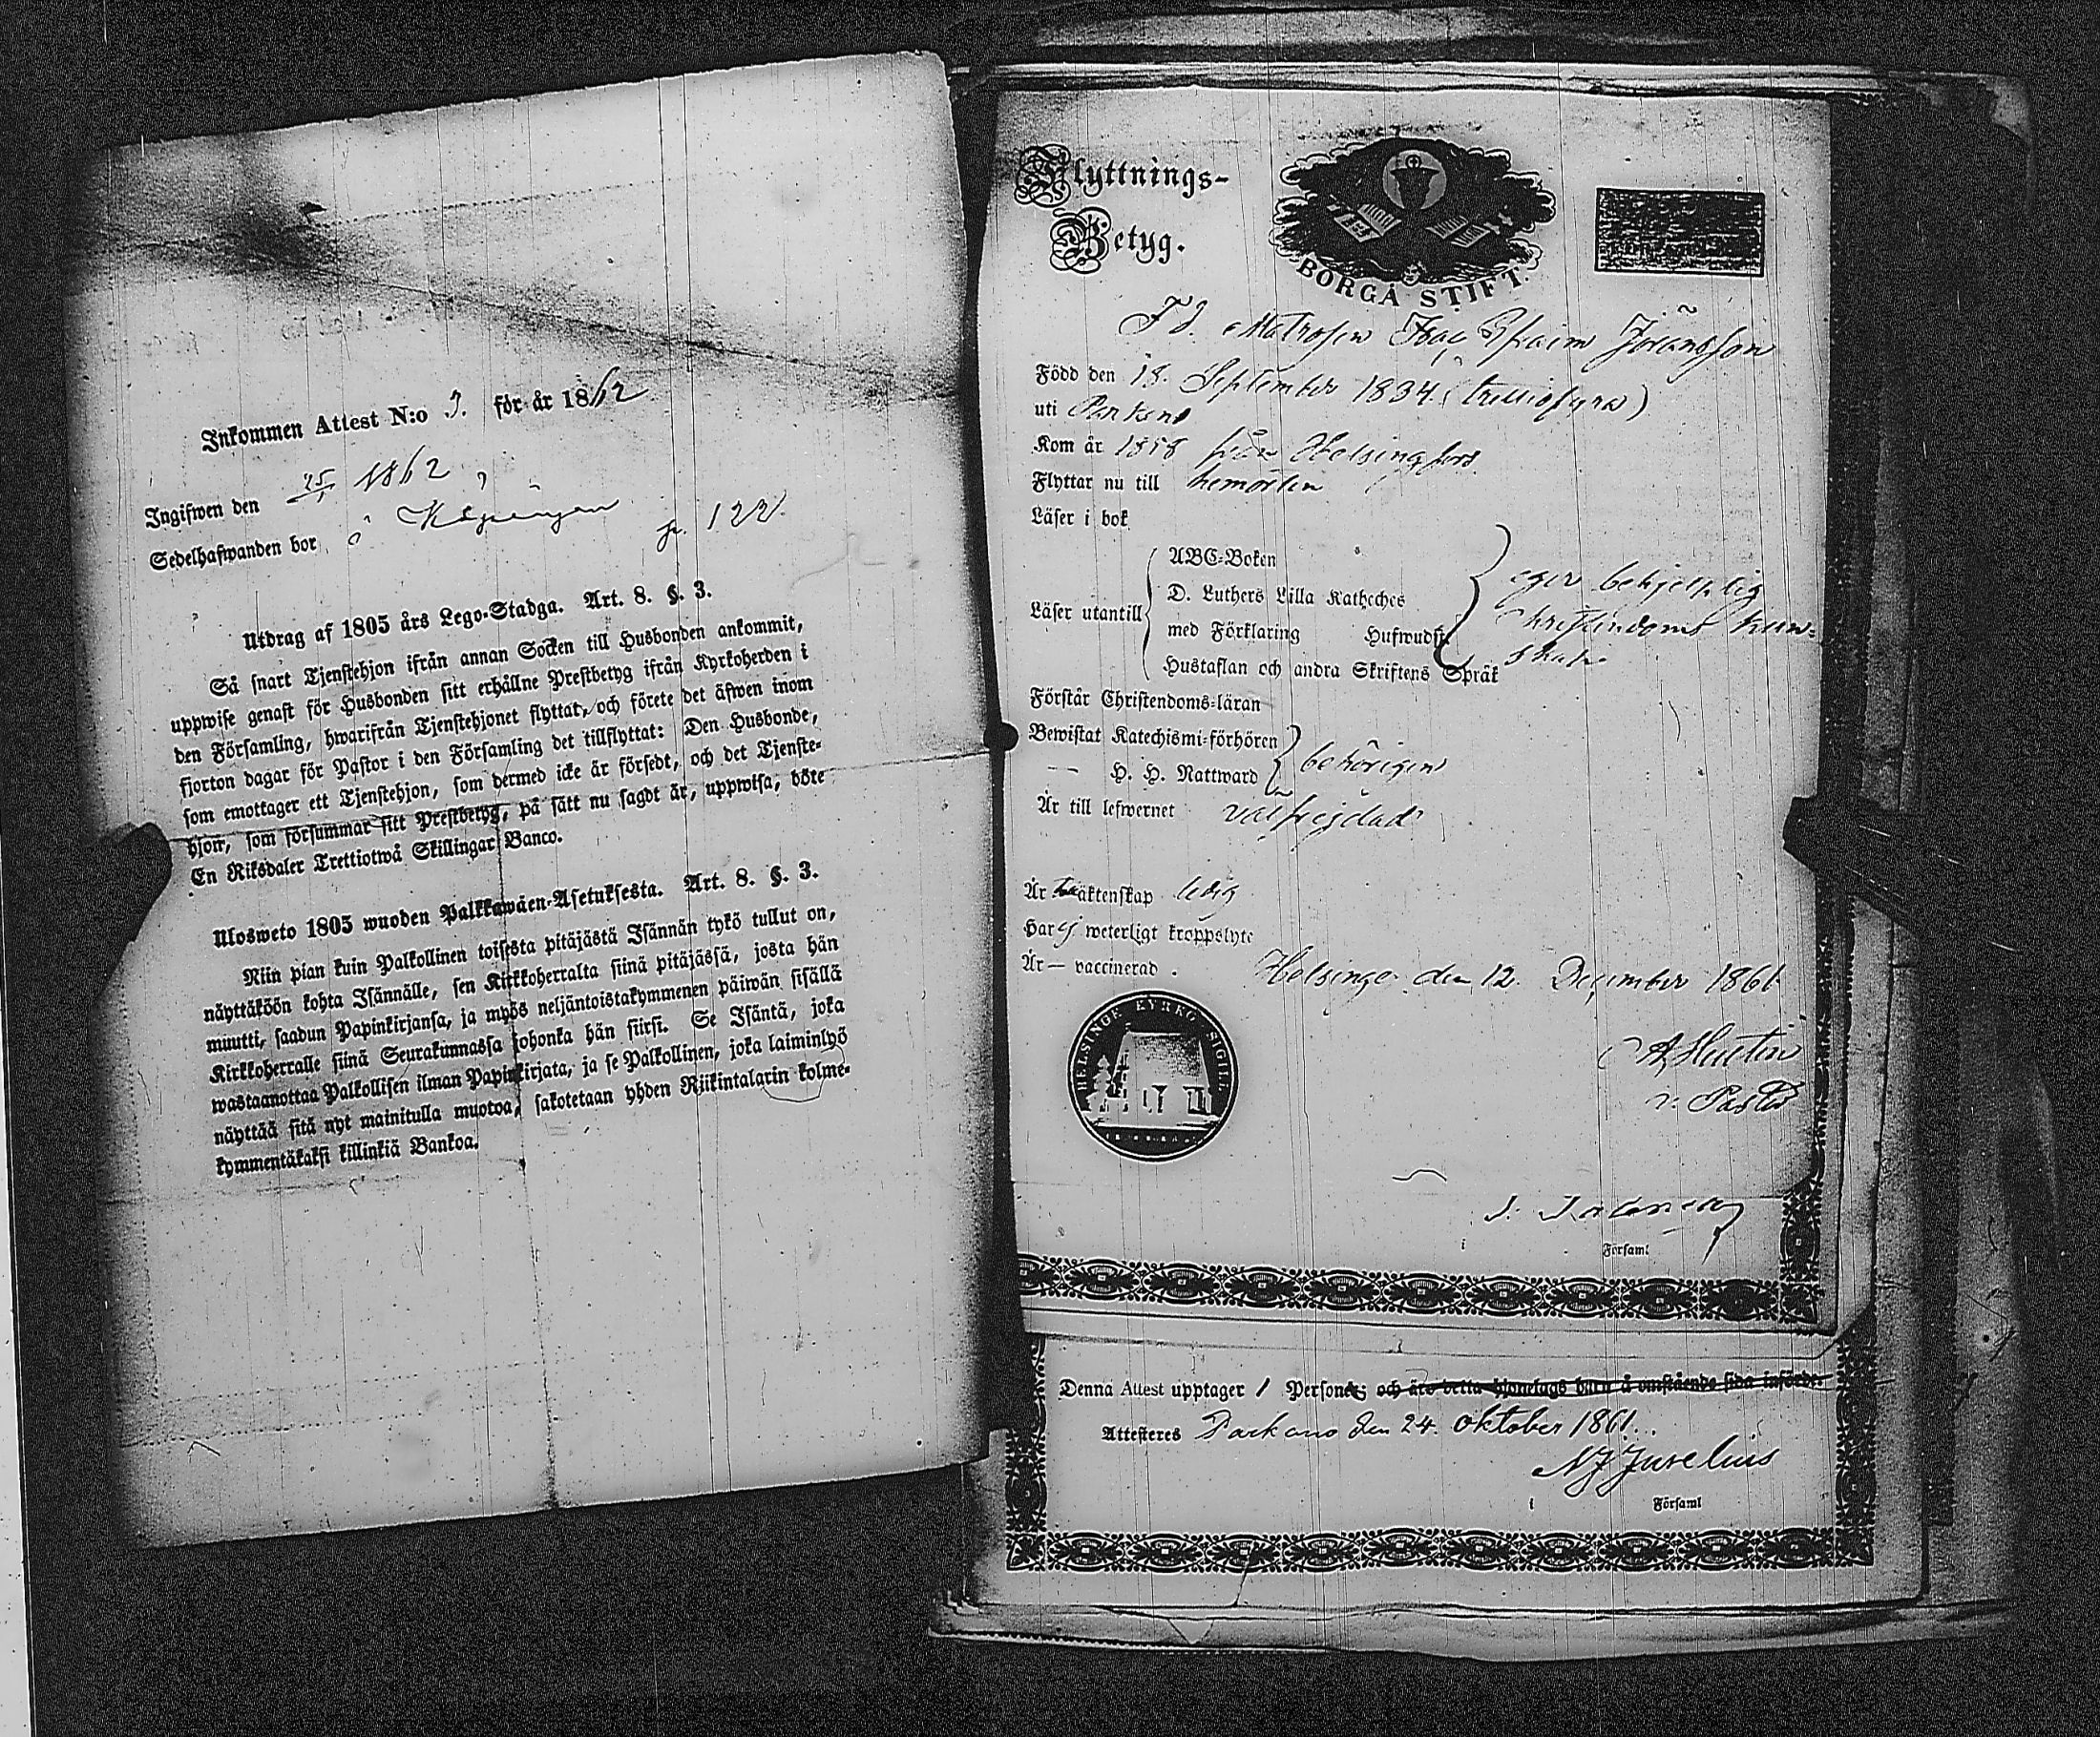 Inkommen Attest N:o 3. för år 1862
Ingifwen den 25/1 1862
Sedelhafwanden bor å Köpingen p. 122.
Utdrag af 1805 års Lego-Stadga. Art. 8. §. 3.
Så snart Tjenstehjon ifrån annan Socken till Husbonden ankommit,
uppwise genast för Husbonden sitt erhållne Prestbetyg ifrån Kyrkoherden i
den Församling, hwarifrån Tjenstehjonet flyttat, och förete det äfwen inom
fjorton dagar för Pastor i den Församling det tillflyttat: Den Husbonde,
som emottager ett Tjenstehjon, som dermed icke är försedt, och det Tjenste-
hjon, som försummar sitt Prestbetyg, på sätt nu sagdt är, uppwisa, böte
En Riksdaler Trettiotwå Skillingar Banco.
Ulosweto 1805 wuoden Palkkawäen-Asetuksesta. Art. 8. §. 3.
Niin pian kuin Palkollinen toisesta pitäjästä Isännän tykö tullut on,
näyttäköön kohta Isännälle, sen Kirkkoherralta siinä pitäjässä, josta hän
muutti, saadun Papinkirjansa, ja myös neljäntoistakymmenen päiwän sisällä
Kirkkoherralle siinä Seurakunnassa johonka hän siirsi. Se Isäntä, joka
wastaanottaa Palkollisen ilman Papinkirjata, ja se Palkollinen, joka laiminlyö
näyttää sitä nyt mainitulla muotoa, sakotetaan yhden Riikintalarin kolme-
kymmentäkaksi killinkiä Bankoa.
Flyttnings-
Betyg.
BORGÅ STIFT.
F.d. Matrosen Isac Efraim Göransson
Född den 18. September 1834 (trettiofyra)
uti Parkano
Kom år 1858 från Helsingfors
Flyttar nu till hemorten
Läser i bok
Läser utantill
ABC-Boken
D. Luthers Lilla Katheches
med Förklaring Hufwudst
Hustaflan och andra Skriftens Språk
eger behjelplig
Christendoms kun-
skap.
Förstår Christendoms-läran
Bewistat Katechismi-förhören
— H. H. Nattward
behörigen
Är till lefwernet välfrejdad
Är till äktenskap ledig
Har ej weterligt kroppslyte
Är — vaccinerad.
Helsinge den 12. December 1861
HELSINGE KYRKO SIGILL
v. Pastor
i Församl
Denna Attest upptager 1 Person; och äro detta hjonelags barn å omstående sida införde
Attesteres Parkano den 24. Oktober 1861.
NJ Jurelius
i Församl